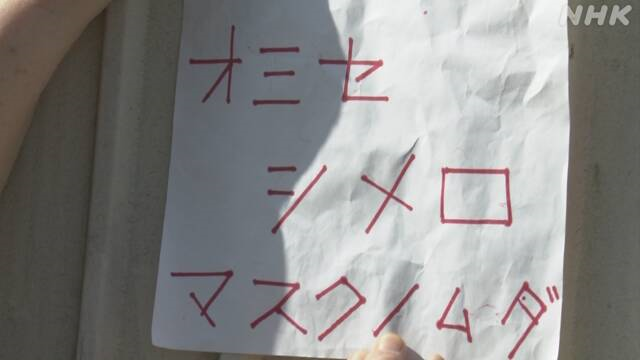 NHK
オミセ
シメロ
マスクノムダ